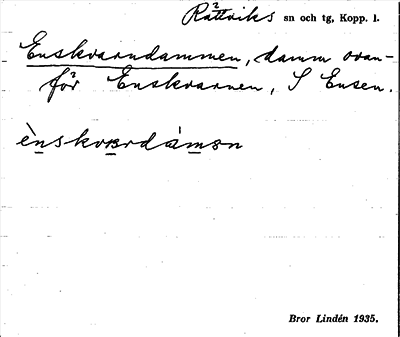 Rättviks sn och tg, Kopp. l.
Enskvarndammen, damm ovan-
för Enskvarnen, S Ensen.
Bror Lindén 1935.